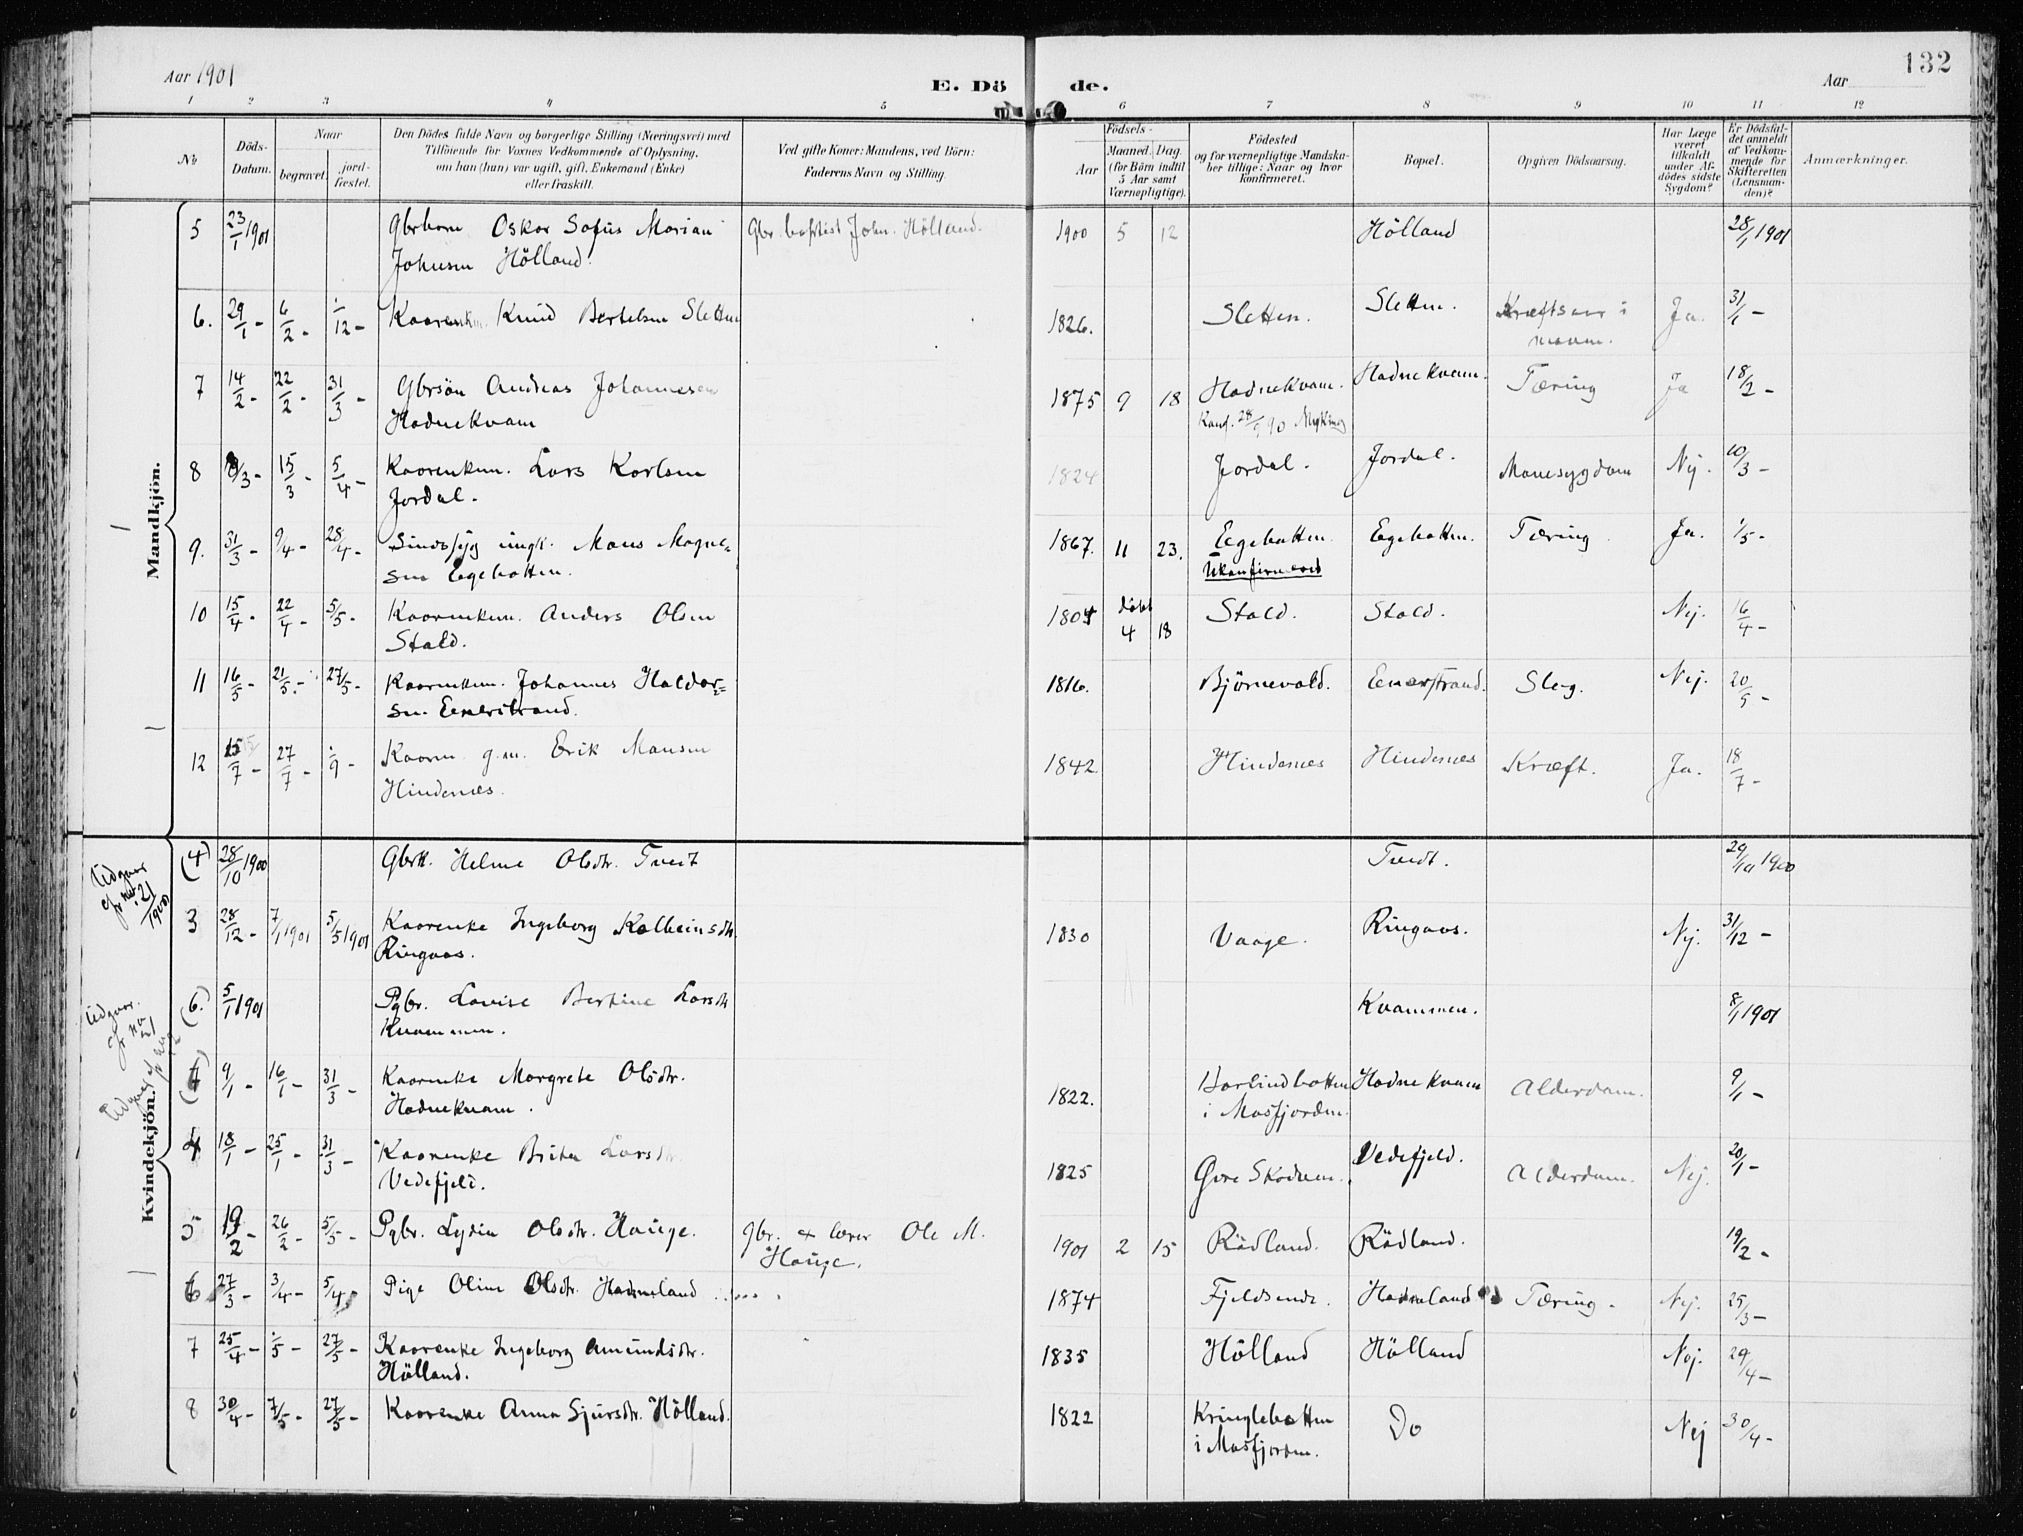 Aar 1901
E. Dö
de.
Aar
132
1 2 3 4 5 6 7 8 9 10 11 12
No
Döds-
Datum.
Naar
begravet.
jord-
fæstet.
Den Dödes fulde Navn og borgerlige Stilling (Næringsvei) med
Tilföiende for Voxnes Vedkommende af Oplysning,
om han (hun) var ugift, gift, Enkemand (Enke)
eller fraskilt.
Ved gifte Koner: Mandens, ved Börn:
Faderens Navn og Stilling.
Födsels-
Aar
Maaned. Dag
(for Börn indtil
5 Aar samt
Værnepligtige).
Födested
og for værnepligtige Mandska-
ber tillige: Naar og hvor
konfirmeret.
Bopæl.
Opgiven Dödsaarsag.
Har Læge
været
tilkaldt
under Af-
dödes sidste
Sygdom?
Er Dödsfal-
det anmeldt
af Vedkom-
mende for
Skifteretten
(Lensman-
den)?
Anmærkninger.
Mandkjön.
5 23/1 1901 Gbrbarn Oskar Sofus Marian Gbr. baptist John. Hölland. 1900 5 12 Hölland 28/1 1901
Johnsen Hölland.
6. 29/1 - 6/2 - 1/12 - Kaarenkm. Knud Bertelsen Sletten 1826. Sletten. Sletten. Kræftsaar i Ja. 31/1 -
maven.
7 14/2 - 22/2 - 31/3 - Gbrsön Andreas Johannesen 1875 9 18 Hadnekvam. Hadnekvam. Tæring Ja 18/2 -
Hadnekvam Konf. 90
8 8/3 - 15/3 - 5/4 - Kaarenkm. Lars Karlsen 1824 Jordal. Jordal. Mavesygdom Nej. 10/3 -
Jordal.
9. 31/3 - 9/4 - 28/4 - Sindssyg ungk. Mons Magne= 1867. 11 23. Egebotten. Egebotten. Tæring Ja. 1/5 -
sen Egebotten. Ukonfirmeret
10 15/4 - 22/4 - 5/5 - Kaarenkm. Anders Olsen 1804 döbt 4 18 Stald. Stald. Nej. 16/4 -
Stald.
11 16/5 - 21/5 - 27/5 - Kaarenkm. Johannes Haldor= 1816. Björnevold. Eenerstrand. Slag. Nej. 20/5 -
sen Eenerstrand.
12 15/7 - 27/7 - 1/9 - Kaarm. g.m. Erik Monsen 1842 Hindenæs Hindenæs Kræft. Ja. 18/7 -
Hindenæs.
Kvindekjön.
(4) 28/10 1900 Gbrk. Helene Olsdtr. Tveit Tveit. 29/10 1900
3 28/12 - 7/1 1901 5/5 1901 Kaarenke Ingeborg Kolbeinsdtr. 1830 Vaage. Ringaas. Nej. 31/12 -
Ringaas.
(6.) 5/1 1901 Pgbr. Lovise Bertine Larsdtr Kvammen. 8/1 1901
Kvammen.
9/1 - 16/1 - 31/3 - Kaarenke Margrete Olsdtr. 1822. Haslindbotten Hadnekvam Alderdom. 9/1 -
Hadnekvam. i Masfjorden.
4 18/1 - 25/1 - 31/3 - Kaarenke Brita Larsdtr. 1825 Øvre Skodven. Vedefjeld. Alderdom. Nej. 20/1 -
Vedefjeld.
5 19/2 - 26/2 - 5/5 - Pgbr. Lydia Olsdtr. Hauge. gbr. & lærer Ole M. 1901 2 15 Rödland. Rödland. 19/2 -
Hauge.
6 27/3 - 3/4 - 5/4 - Pige Oline Olsdtr. Hadneland 1874 Fjeldsende. Hadneland Tæring. Nej. 25/3 -
7 25/4 - 1/5 - 27/5 - Kaarenke Ingeborg Amundsdtr. 1835 Hölland Hölland Nej. 29/4 -
Hölland.
8 30/4 - 7/5 - 27/5 - Kaarenke Anna Sjursdtr. Hölland. 1822 Kringlebotten Do Nej 30/4 -
i Masfjorden.